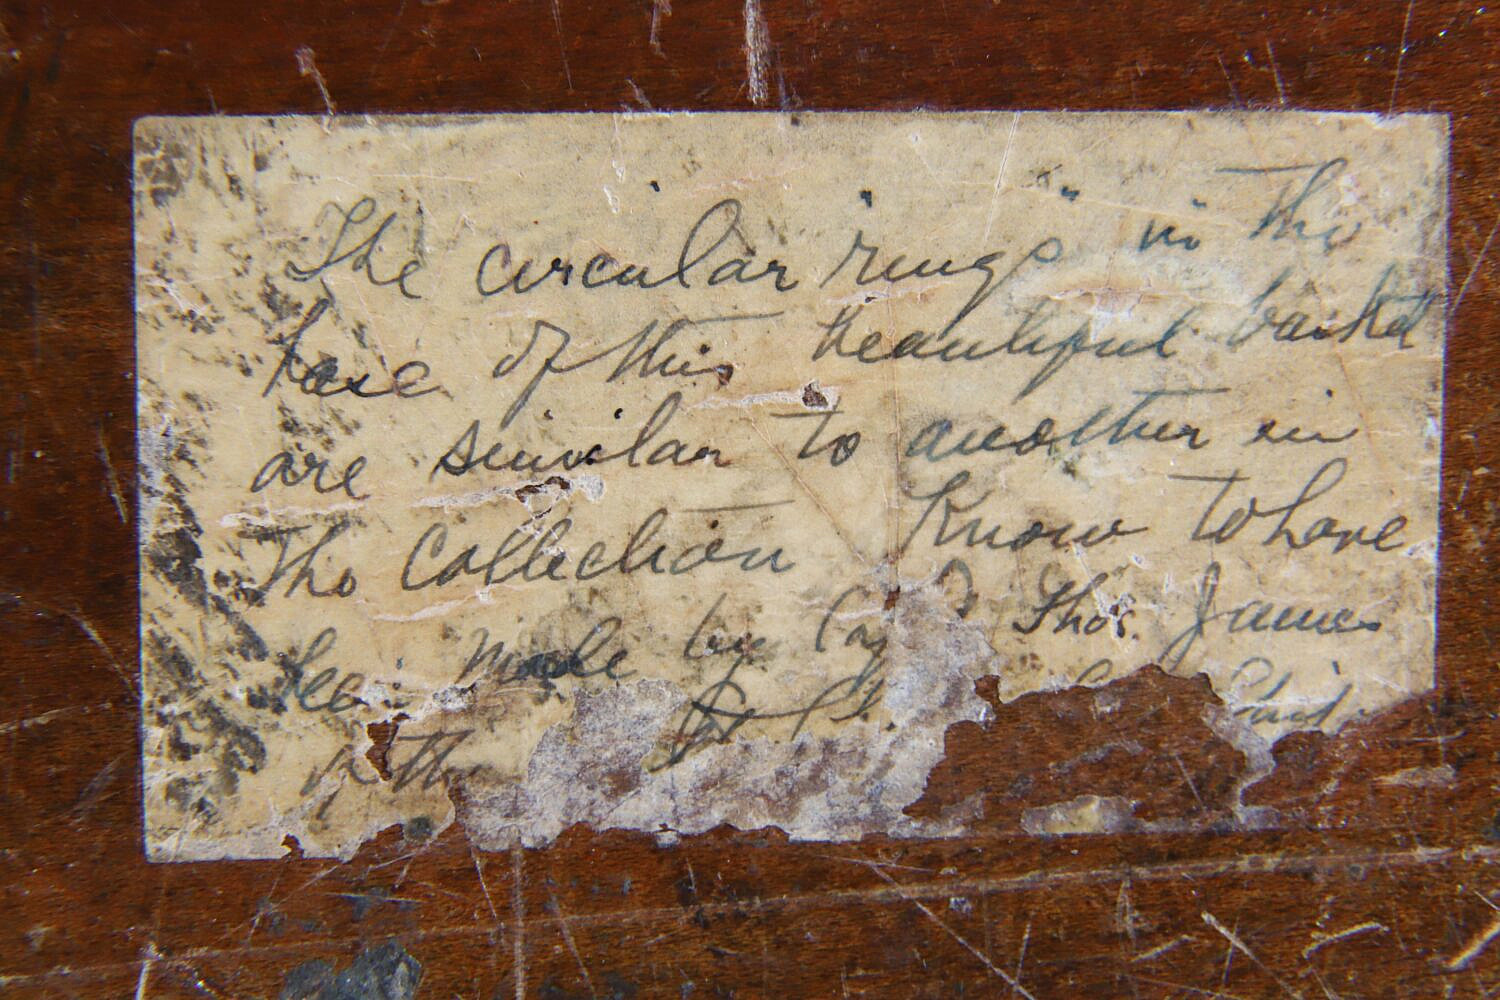 The circular "rings" in the
base of this beautiful basket
are similar to another in
the Collection Know to have
been made by Cap Thos. James
of the